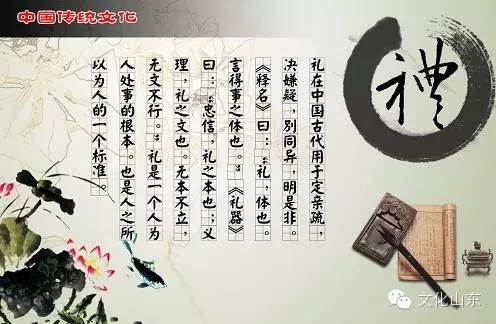 中国传统文化
禮
礼在中国古代用于定亲疏，
决嫌疑，别同异，明是非。
《释名》曰：“礼，体也。
言得事之体也。”《礼器》
曰：“忠信，礼之本也；义
理，礼之文也。无本不立，
无文不行。”礼是一个人为
人处事的根本。也是人之所
以为人的一个标准。
文化山东